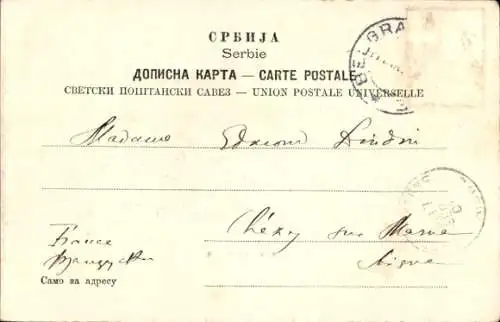 СРБИЈА
Serbie
ДОПИСНА КАРТА — CARTE POSTALE
СВЕТСКИ ПОШТАНСКИ САВЕЗ — UNION POSTALE UNIVERSELLE
BELGRA
Madame Edmond
sur Marne
France
Француски
Само за адресу